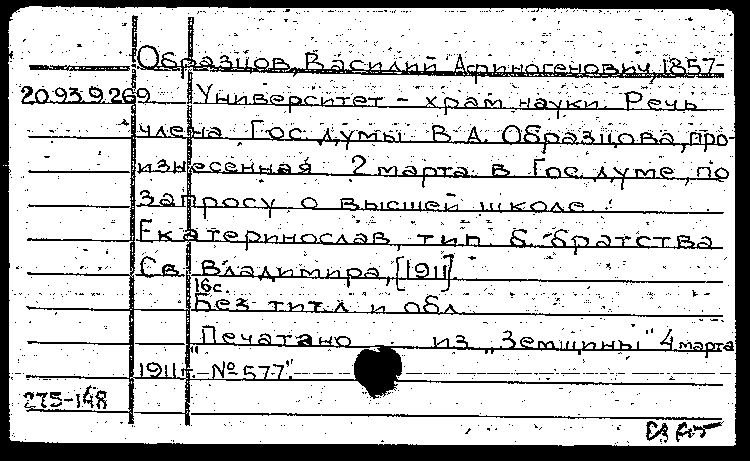 Образцов, Василий Афиногенович, 1857-
20.93.9.269 Университет - храм науки. Речь
члена Гос. думы В. А. Образцова, про-
изнесенная 2 марта в Гос. думе, по
запросу о высшей школе.
Екатеринослав, тип. б. братства
Св. Владимира, [1911]
16с.
Без тит. л. и обл.
Печатано из „Земщины" 4 марта
1911 г. № 577".
275-148